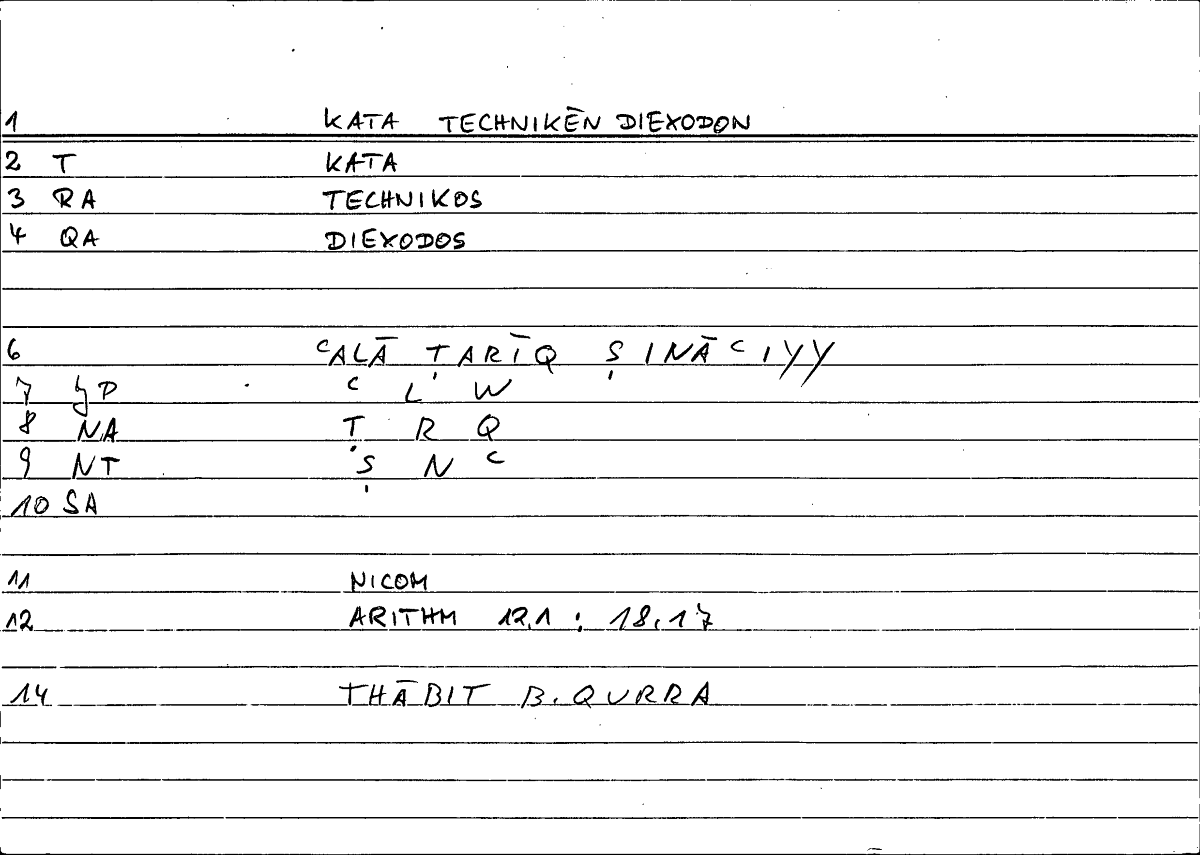 1 KATA TECHNIKĒN DIEXODON
2 T KATA
3 RA TECHNIKOS
4 QA DIEXODOS
6 ᶜALĀ ṬARĪQ ṢINĀᶜIYY
7 ᶜ L W
8 NA Ṭ R Q
9 NT Ṣ N ᶜ
10 SA
11 NICOM
12 ARITHM 12,1 : 18,17
14 THĀBIT B. QURRA